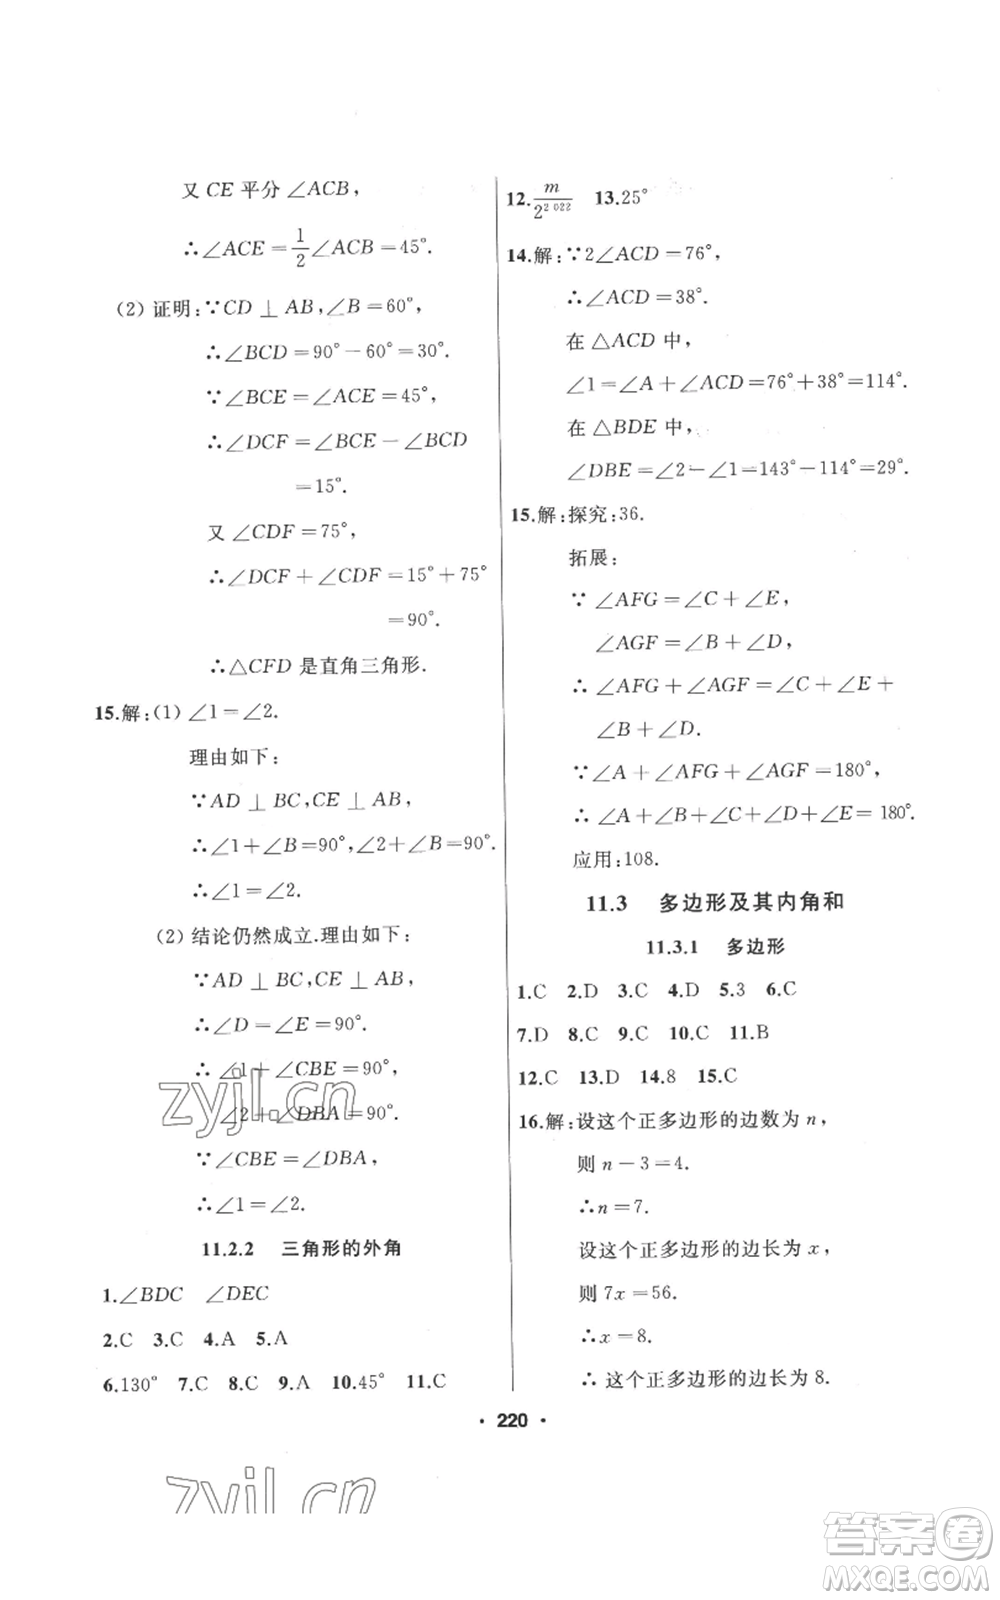 又 CE 平分 ∠ACB,
∴∠ACE=1/2∠ACB=45°.
(2) 证明:∵CD⊥AB,∠B=60°,
∴∠BCD=90°-60°=30°.
∵∠BCE=∠ACE=45°,
∴∠DCF=∠BCE-∠BCD
=15°.
又 ∠CDF=75°,
∴∠DCF+∠CDF=15°+75°
=90°.
∴△CFD 是直角三角形.
15.解:(1) ∠1=∠2.
理由如下:
∵AD⊥BC,CE⊥AB,
∴∠1+∠B=90°,∠2+∠B=90°.
∴∠1=∠2.
(2) 结论仍然成立.理由如下:
∵AD⊥BC,CE⊥AB,
∴∠D=∠E=90°.
∴∠1+∠CBE=90°,
∠2+∠DBA=90°.
∵∠CBE=∠DBA,
∴∠1=∠2.
11.2.2 三角形的外角
1.∠BDC ∠DEC
2.C 3.C 4.A 5.A
6.130° 7.C 8.C 9.A 10.45° 11.C
12.m/2^2 022 13.25°
14.解:∵2∠ACD=76°,
∴∠ACD=38°.
在 △ACD 中,
∠1=∠A+∠ACD=76°+38°=114°.
在 △BDE 中,
∠DBE=∠2-∠1=143°-114°=29°.
15.解:探究:36.
拓展:
∵ ∠AFG=∠C+∠E,
∠AGF=∠B+∠D,
∴ ∠AFG+∠AGF=∠C+∠E+
∠B+∠D.
∵∠A+∠AFG+∠AGF=180°,
∴ ∠A+∠B+∠C+∠D+∠E=180°.
应用:108.
11.3 多边形及其内角和
11.3.1 多边形
1.C 2.D 3.C 4.D 5.3 6.C
7.D 8.C 9.C 10.C 11.B
12.C 13.D 14.8 15.C
16.解:设这个正多边形的边数为 n,
则 n-3=4.
∴n=7.
设这个正多边形的边长为 x,
则 7x=56.
∴x=8.
∴ 这个正多边形的边长为 8.
· 220 ·
zyjl.cn
zyjl.cn
答案卷
MXQE.COM